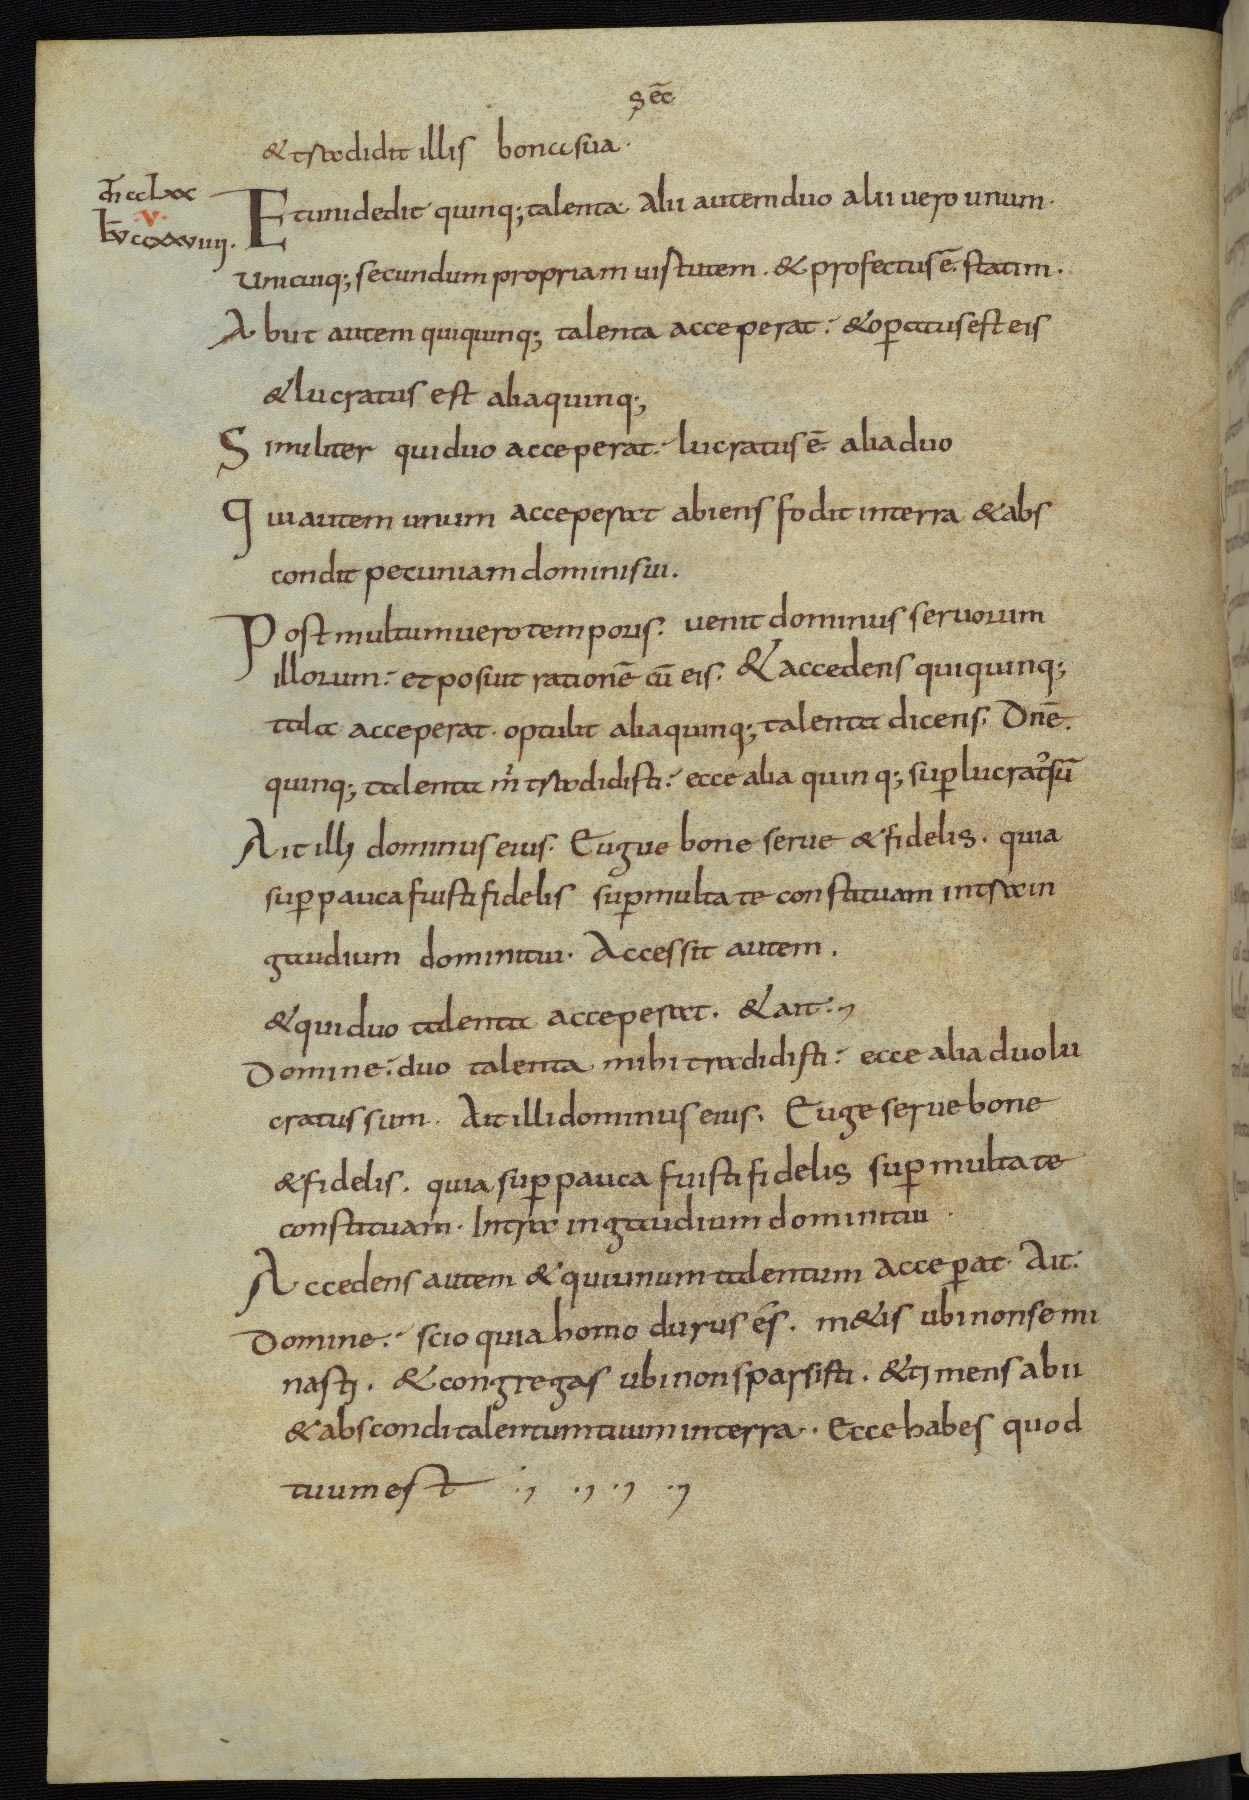 sēc
& tradidit illis bona sua.
m̄ cclxx
.v.
lv̄ ccxxviiii.
Et uni dedit quinq; talenta alii autem duo alii vero unum.
unicuiq; secundum propriam uirtutem. & profectus ē. statim.
Abiit autem qui quinq; talenta acceperat. & operatus est eis
& lucratus est alia quinq;
Similiter qui duo acceperat. lucratus ē alia duo
Qui autem unum acceperat abiens fodit in terra & abs
condit pecuniam domini sui.
Post multum uero temporis. uenit dominus seruorum
illorum. et posuit rationē cū eis. & accedens qui quinq;
tala acceperat. optulit alia quinq; talenta dicens. Dnē.
quinq; talenta m̄ tradidisti. ecce alia quinq; sup lucrat' sū
Ait illi dominus eius. Eugue bone serue & fidelis. quia
sup pauca fuisti fidelis sup multa te constituam intra in
gaudium domini tui. Accessit autem.
& qui duo talenta acceperat. & ait.,
Domine. duo talenta mihi tradidisti. ecce alia duo lu
cratus sum. Ait illi dominus eius. Euge serue bone
& fidelis. quia sup pauca fuisti fidelis sup multa te
constituam. Intra in gaudium domini tui.
Accedens autem & qui unum talentum accepat. Ait.
Domine. scio quia homo durus és. m&is ubi non semi
nasti. & congregas ubi non sparsisti. & timens abii
& abscondi talentum tuum in terra. Ecce habes quod
tuum est ., ., ., .,